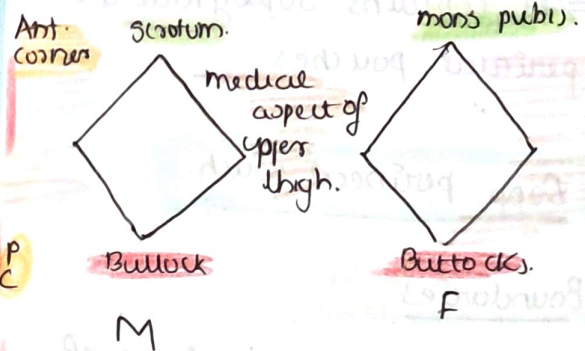 Ant.
corner
scrotum.
mons pubis.
medical
aspect of
upper
thigh.
P
C
Bullock
Buttocks.
M
F